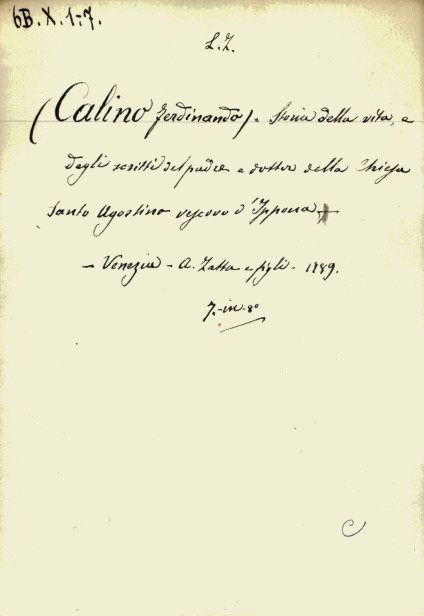 6B.X.1-7.
L.Z.
(Calino Ferdinando) - Storia della vita, e
degli scritti del padre e dottor della Chiesa
Santo Agostino vescovo d'Ippona
- Venezia - A. Zatta e figli - 1789.
7.-in-8°
C